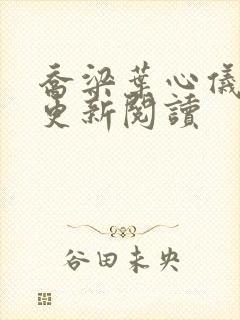 喬梁葉心儀
更新閱讀
谷田未央